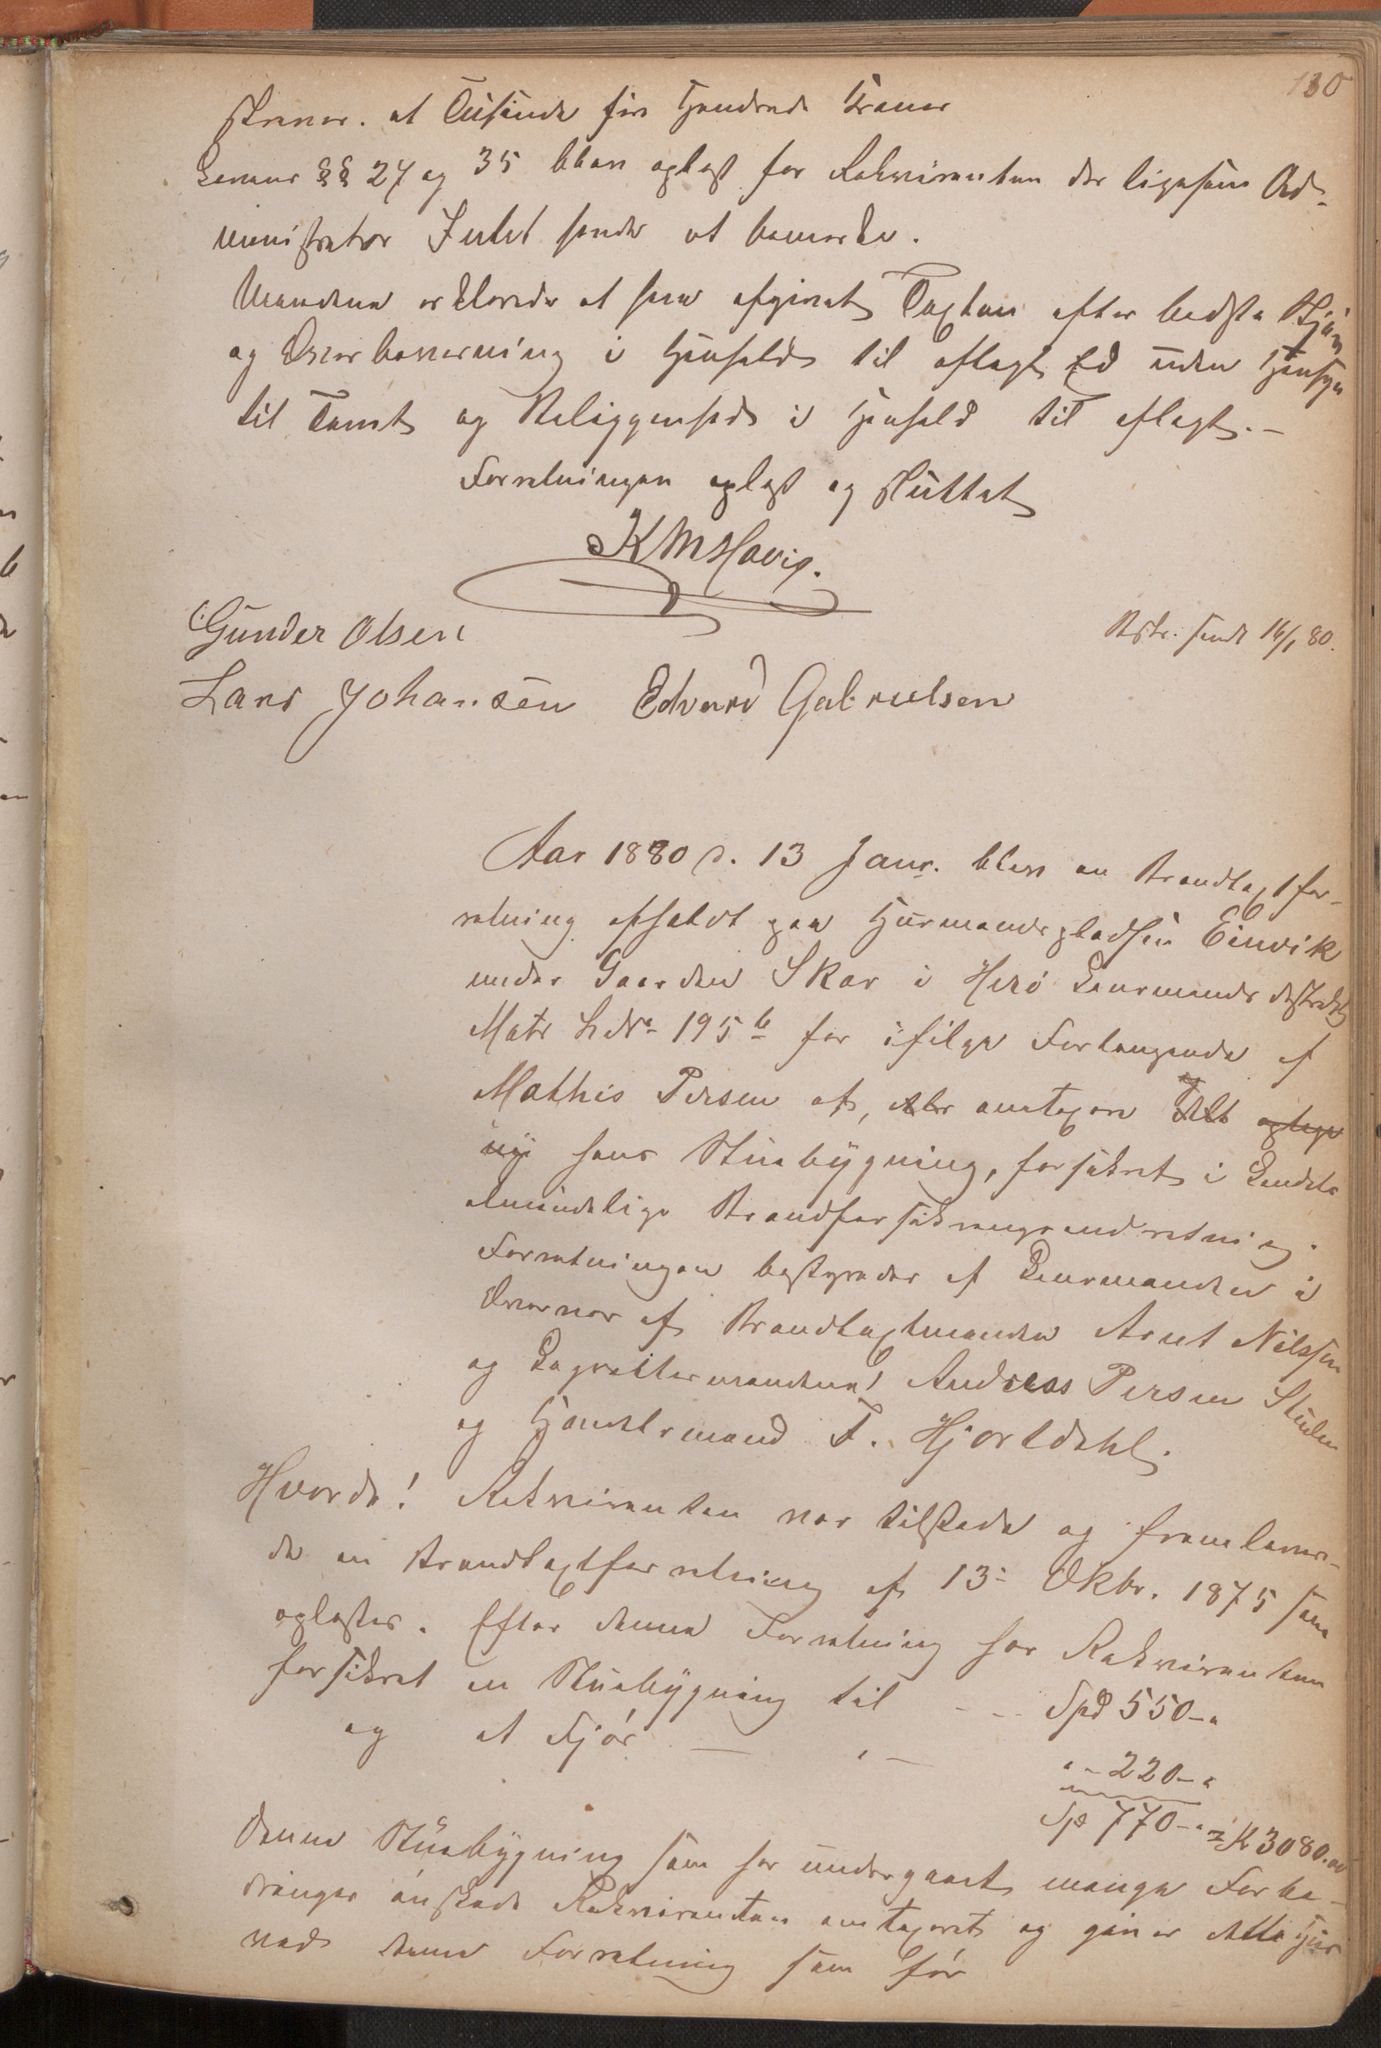 130
Kroner. et Tusinde fire Hundrede Kroner
Lovens §§ 27 og 35 blev oplæst for Rekvirenten der ligesom Ad-
ministrator Intet havde at bemærke.
Mændene erklærede at have afgivet Taxten efter bedste Skjøn
og Overbevisning i Henhold til aflagt Ed uden Hensyn
til Tomt og Beliggenhed i Henhold til aflagt.-
Forretningen oplæst og sluttet
K M Havig.
Gunder Olsen
Bstr. sendt 16/1 80.
Lars Johansen Edvard Gabrielsen
Aar 1880 d. 13 Janr. blev en Brandtaxtfor-
retning afholdt paa Husmandspladsen Einvik
under Gaarden Skar i Herö Lensmandsdistrikt
Matr L. No 195 b for ifølge Forlangende af
Mathis Persen at, omtaxere
ny hans Stuebygning, forsikret i Landets
almindelige Brandforsikringsindretning.
Forretningen bestyredes af Lensmanden i
Overvær af Brandtaxtmanden Arnt Nilssen
og Lagrettemændene! Andreas Persen Stulen
og Handelsmand T. Hjortdahl.
Hvorda! Rekvirenten var tilstede og fremlever-
de en Brandtaxtforretning af 13- Oktbr. 1875 som
oplæstes. Efter denne Forretning har Rekvirenten
forsikret en Stuebygning til - - - Spd 550-"
og et Fjøs — " — " - 220-"
Sp 770-" = K 3080.00
Denne Stuebygning som har undergaaet mange Forbe-
dringer ønskede Rekvirenten omtaxeret og giver dette
ved denne Forretning som før